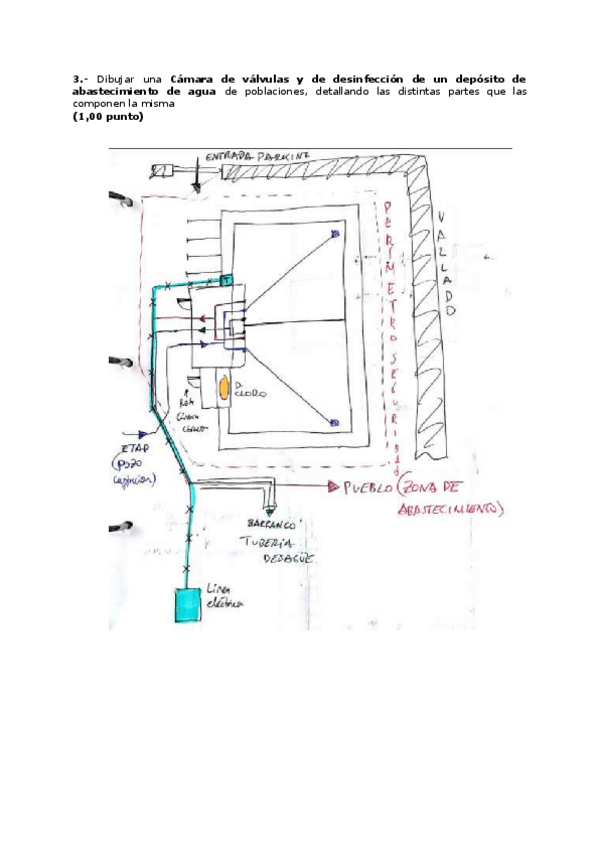 3.- Dibujar una Cámara de válvulas y de desinfección de un depósito de
abastecimiento de agua de poblaciones, detallando las distintas partes que las
componen la misma
(1,00 punto)
ENTRADA PARKING
PERIMETRO SEGURIDAD
VALLADO
T
D.
CLORO
ETAP
(POZO
PUEBLO (ZONA DE
ABASTECIMIENTO)
BARRANCO
TUBERIA
DESAGÜE
Línea
eléctrica